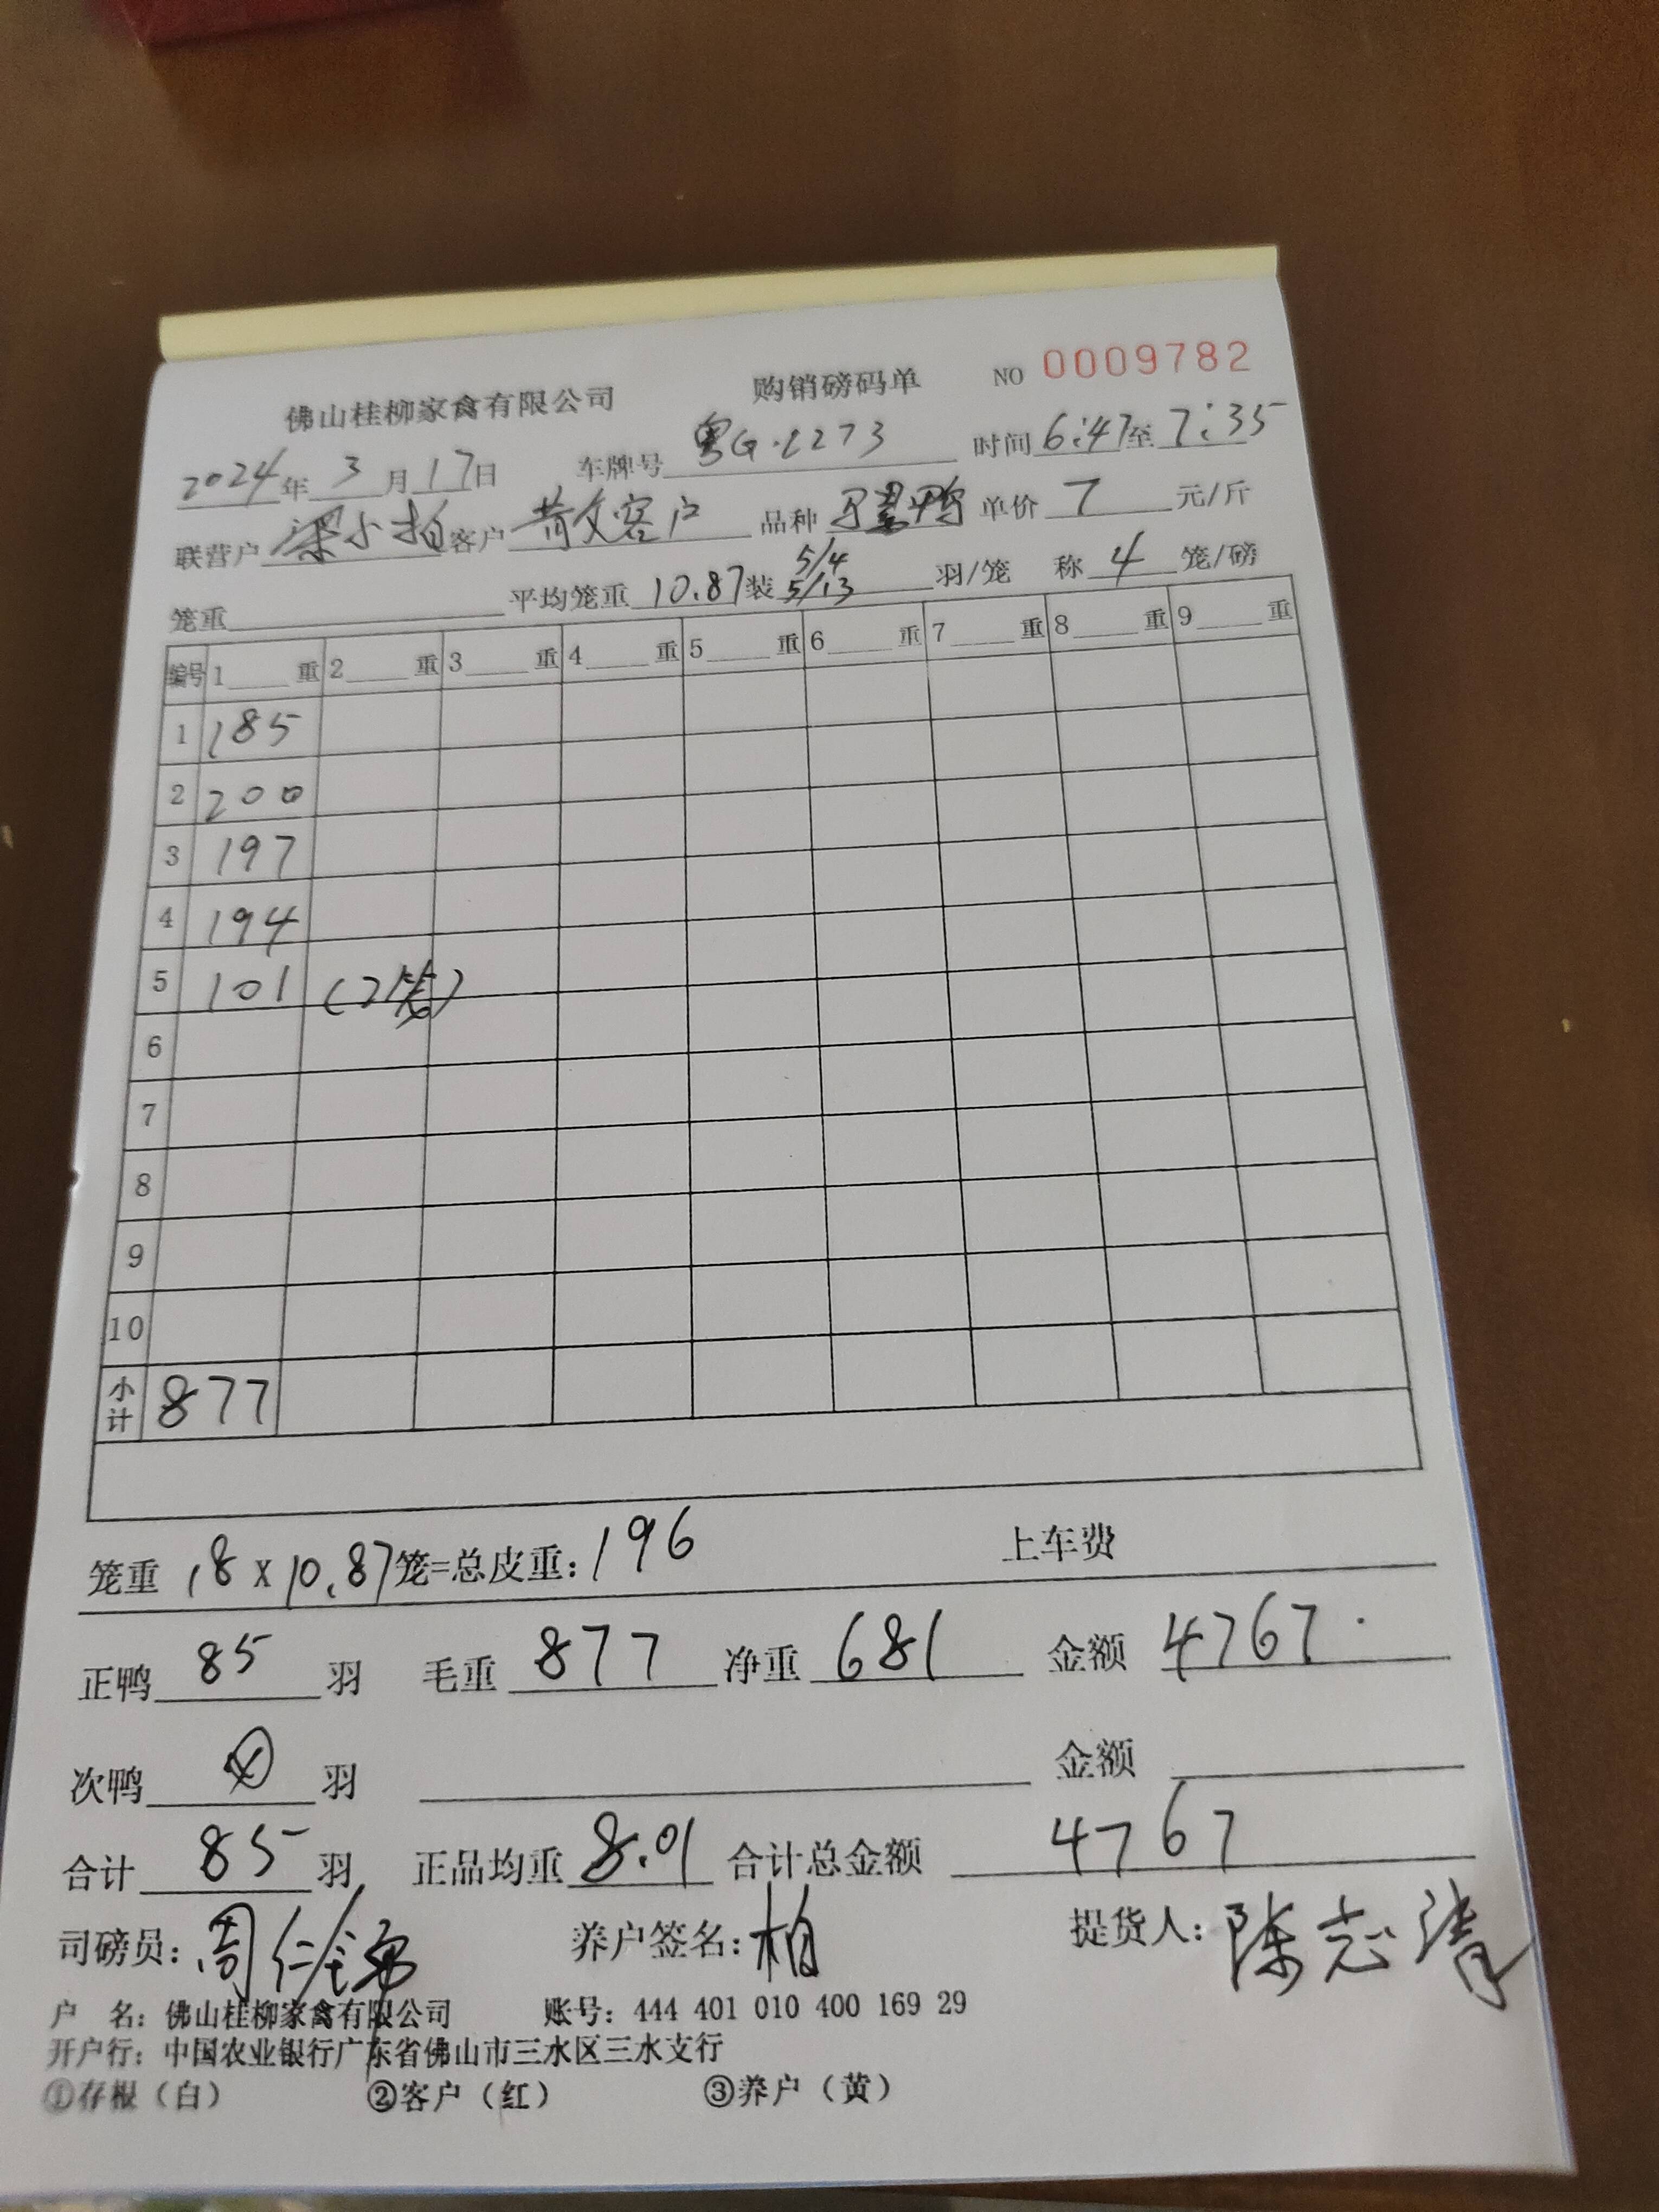 佛山桂柳家禽有限公司 购销磅码单 NO 0009782
2024年3月17日 车牌号 粤G·2273 时间 6:47至7:35
联营户 梁小柏 客户 黄文客户 品种 鸭 单价 7 元/斤
笼重 平均笼重 10.87 装 5/4 5/13 羽/笼 称 4 笼/磅
编号 1 重 2 重 3 重 4 重 5 重 6 重 7 重 8 重 9 重
1 185
2 200
3 197
4 194
5 101 (2笼)
6
7
8
9
10
小计 877
笼重 18 x 10.87 笼=总皮重: 196 上车费
正鸭 85 羽 毛重 877 净重 681 金额 4767.
次鸭 羽 金额
合计 85 羽 正品均重 8.01 合计总金额 4767
司磅员: 周仁 养户签名: 柏 提货人: 陈志清
户 名: 佛山桂柳家禽有限公司 账号: 444 401 010 400 169 29
开户行: 中国农业银行广东省佛山市三水区三水支行
①存根（白） ②客户（红） ③养户（黄）